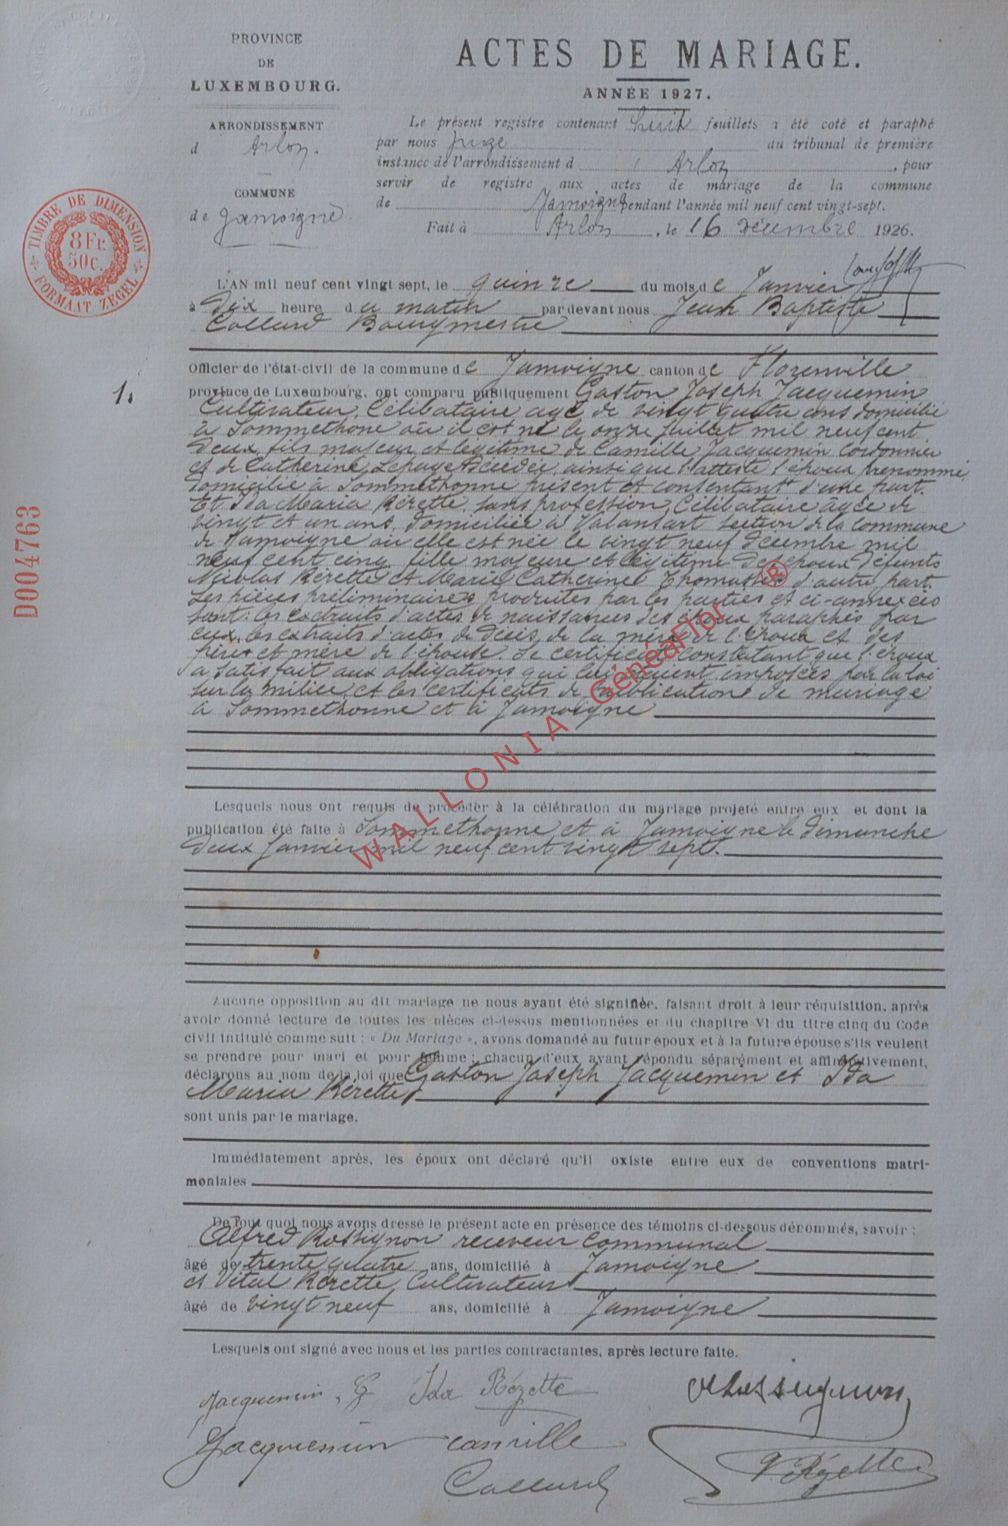 PROVINCE
DE
LUXEMBOURG.
ARRONDISSEMENT
d Arlon.
COMMUNE
de Jamoigne
ACTES DE MARIAGE.
ANNÉE 1927.
Le présent registre contenant huit feuillets a été coté et paraphé
par nous Juge du tribunal de première
instance de l'arrondissement d' Arlon, pour
servir de registre aux actes de mariage de la commune
de Jamoigne pendant l'année mil neuf cent vingt-sept.
Fait à Arlon, le 16 décembre 1926.
TIMBRE DE DIMENSION
8 Fr.
50c.
FORMAAT ZEGEL
D004763
L'AN mil neuf cent vingt sept, le quinze du mois de Janvier
à dix heure du matin par devant nous Jean Baptiste
Collard Bourgmestre
1.
Officier de l'état-civil de la commune de Jamoigne canton de Florenville
province de Luxembourg, ont comparu publiquement Gaston Joseph Jacquemin
Cultivateur, Célibataire agé de vingt quatre ans domicilié
à Sommethonne où il est né le onze Juillet mil neuf cent
deux, fils majeur et légitime de Camille Jacquemin cordonnier
et de Catherine Lepage décédée, ainsi que l'atteste l'époux prénommé
domicilié à Sommethonne présent et consentant d'une part.
Et Ida Maria Rézette, sans profession, Célibataire âgée de
vingt et un ans, domiciliée à Valansart section de la commune
de Jamoigne où elle est née le vingt neuf décembre mil
neuf cent cinq fille majeure et légitime des époux défunts
Nicolas Rézette et Marie Catherine Thomas d'autre part.
Les pièces préliminaires produites par les parties et ci-annexées
sont: les extraits d'actes de naissances des époux paraphés par
eux, les extraits d'actes de décès de la mère de l'époux et des
père et mère de l'épouse. Le certificat constatant que l'époux
a satisfait aux obligations qui lui étaient imposées par la loi
sur la milice, et les certificats de publications de mariage
à Sommethonne et à Jamoigne
WALLONIA GénéaFlor ®
Lesquels nous ont requis de procéder à la célébration du mariage projeté entre eux et dont la
publication été faite à Sommethonne et à Jamoigne le dimanche
deux Janvier mil neuf cent vingt sept.
Aucune opposition au dit mariage ne nous ayant été signifiée, faisant droit à leur réquisition, après
avoir donné lecture de toutes les pièces ci-dessus mentionnées et du chapitre VI du titre cinq du Code
civil intitulé comme suit : « Du Mariage », avons demandé au futur époux et à la future épouse s'ils veulent
se prendre pour mari et pour femme ; chacun d'eux ayant répondu séparément et affirmativement,
déclarons au nom de la loi que Gaston Joseph Jacquemin et Ida
Maria Rézette,
sont unis par le mariage.
Immédiatement après, les époux ont déclaré qu'il existe entre eux de conventions matri-
moniales
De tout quoi nous avons dressé le présent acte en présence des témoins ci-dessous dénommés, savoir :
Alfred Rossignon receveur communal
âgé de trente quatre ans, domicilié à Jamoigne
et Vital Rézette, Cultivateur
âgé de vingt neuf ans, domicilié à Jamoigne
Lesquels ont signé avec nous et les parties contractantes, après lecture faite.
Jacquemin, G Ida Rézette
Jacquemin camille
Collard
V. Rézette